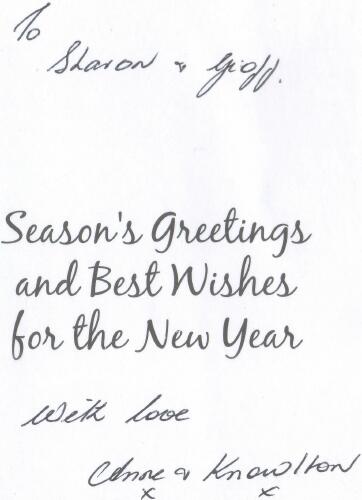 To
Sharon & Geoff.
Season's Greetings
and Best Wishes
for the New Year
With love
Anne & Knowlton
x x